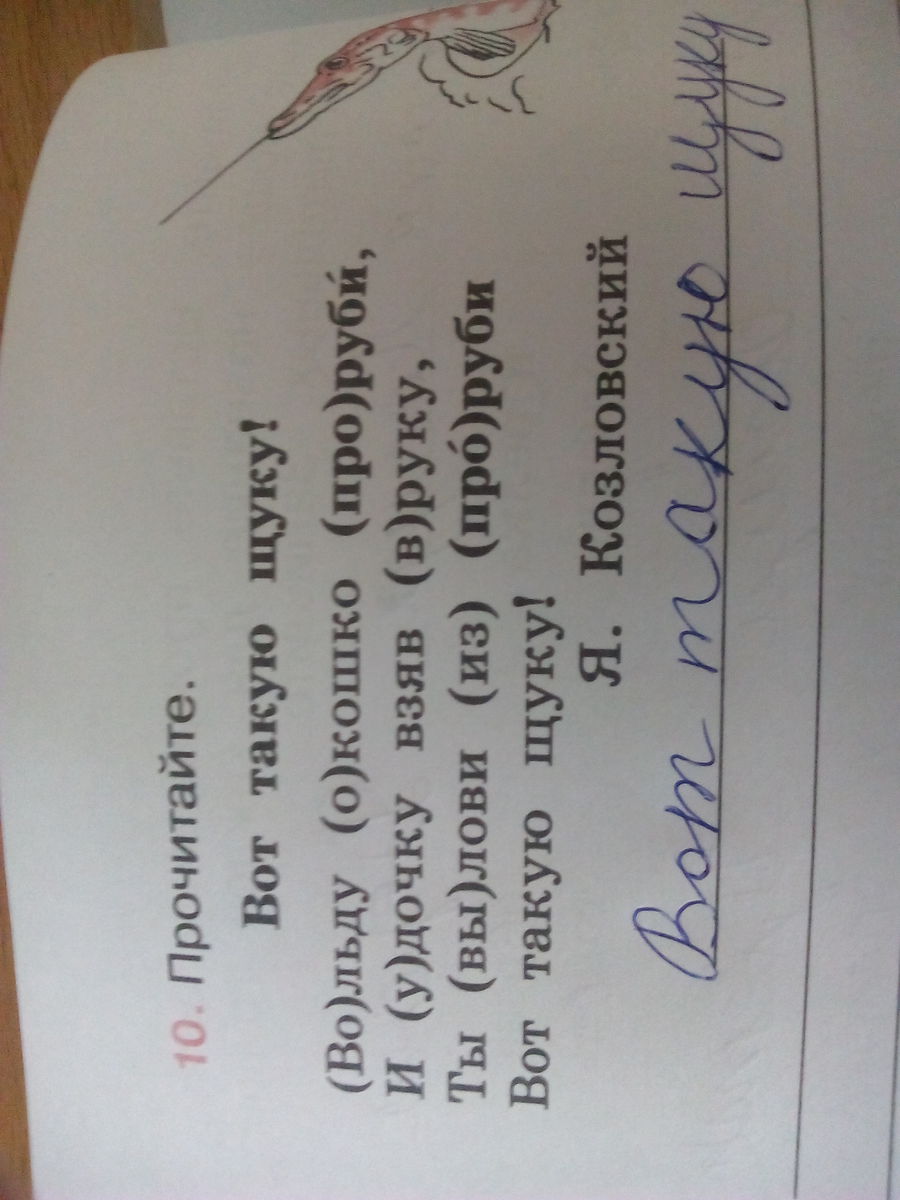 10. Прочитайте.
Вот такую щуку!
(Во)льду (о)кошко (про)руби́,
И (у)дочку взяв (в)руку,
Ты (вы)лови (из) (про́)руби
Вот такую щуку!
Я. Козловский
Вот такую щуку